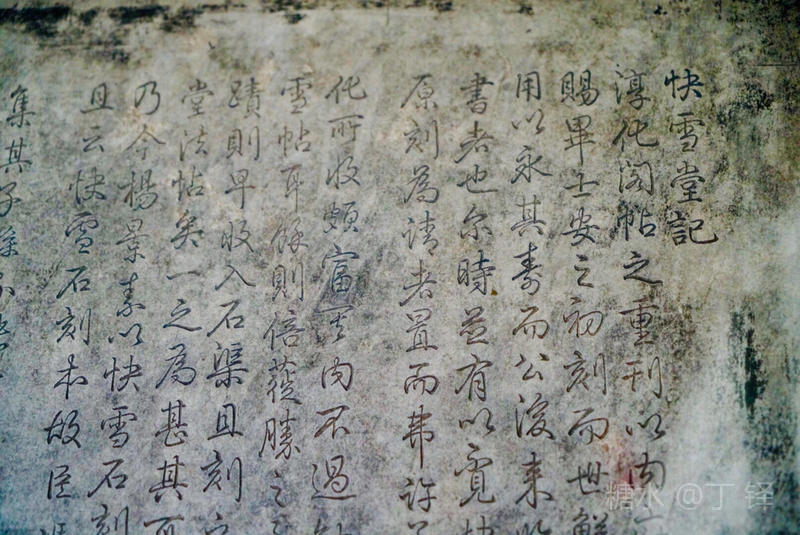 快雪堂記
淳化閣帖之重刊以内
賜畢士安之初刻而世鮮
用以永其壽而公後来
書者也尔時並有以寛
原刻為請者置而弗許
化所收頗富其内不過
雪帖耳餘則倍蓰勝之
蹟則早收入石渠且刻
堂法帖矣一之為甚其可
乃今楊景素以快雪石刻
且云快雪石刻本故臣馮
集其子孫不
糖水 @丁 铎